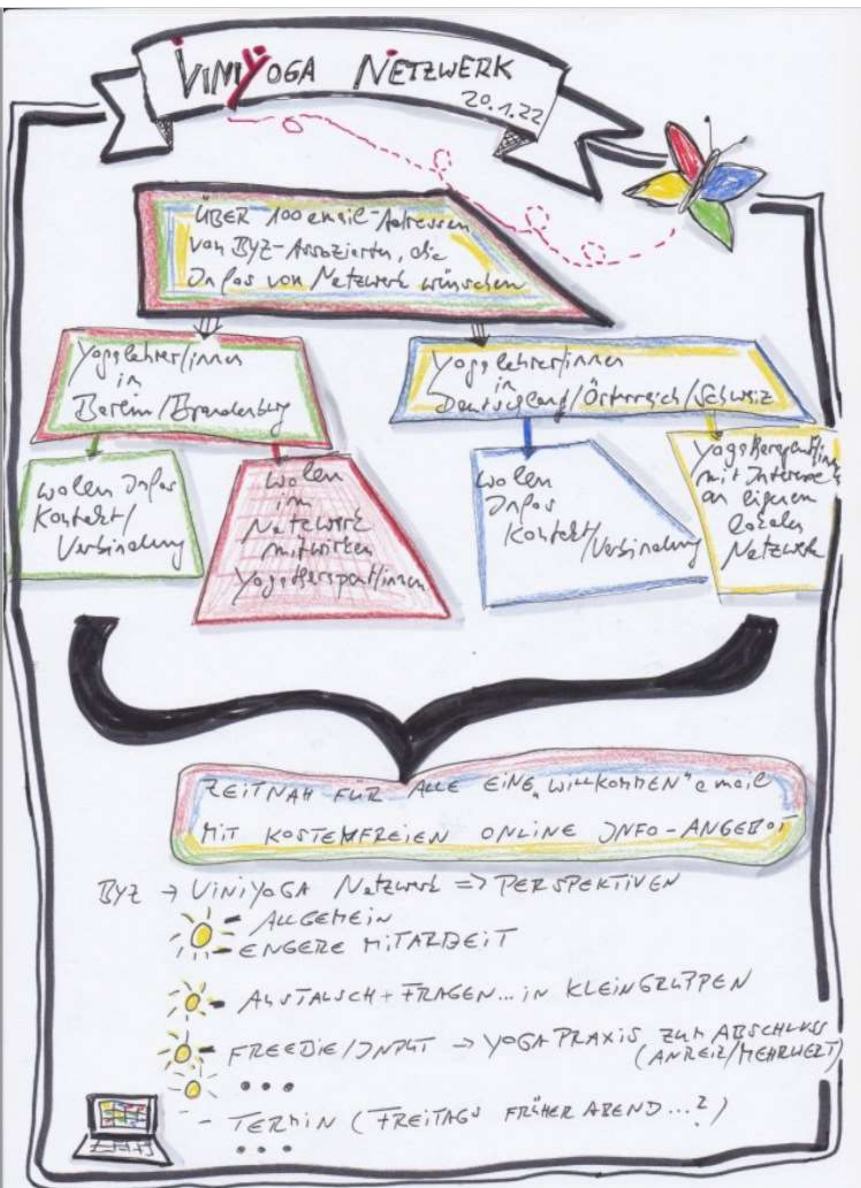 ViNiYOGA NETZWERK
20.1.22
ÜBER 100 email-Adressen
von BYZ-Assoziierten, die
Infos von Netzwerk wünschen
Yogalehrer/innen
in
Berlin/Brandenburg
Yogalehrer/innen
in
Deutschland/Österreich/Schweiz
wolen Infos
Kontakt/
Verbindung
wolen
im
Netzwerk
mitwirken
Yogatherapeut/innen
wolen
Infos
Kontakt/Verbindung
Yogatherapeut/inn
mit Interesse
an eigenem
lokalen
Netzwerk
ZEITNAH FÜR ALLE EiNE „WiLLKOMMEN" email
MiT KOSTENFREIEN ONLINE INFO-ANGEBOT
BYZ → ViNiYOGA Netzwerk => PERSPEKTiVEN
- ALLGEMEiN
- ENGERE MiTARBEiT
- AUSTAUSCH + FRAGEN... iN KLEiNGRUPPEN
- FREEBIE/INPUT → YOGA PRAXiS ZUM ABSCHLUSS
(ANREiZ/MEHRWERT)
...
- TERMiN (FREiTAGS FRÜHER ABEND...?)
...